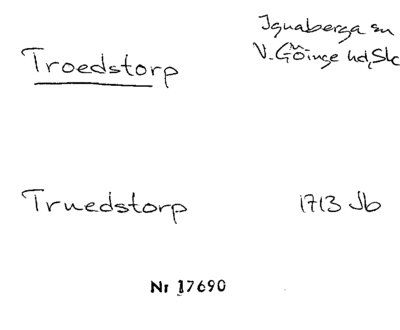 Troedstorp
Ignaberga sn
V. Göinge hd, Sk
Truedstorp
1713 Jb
Nr 17690